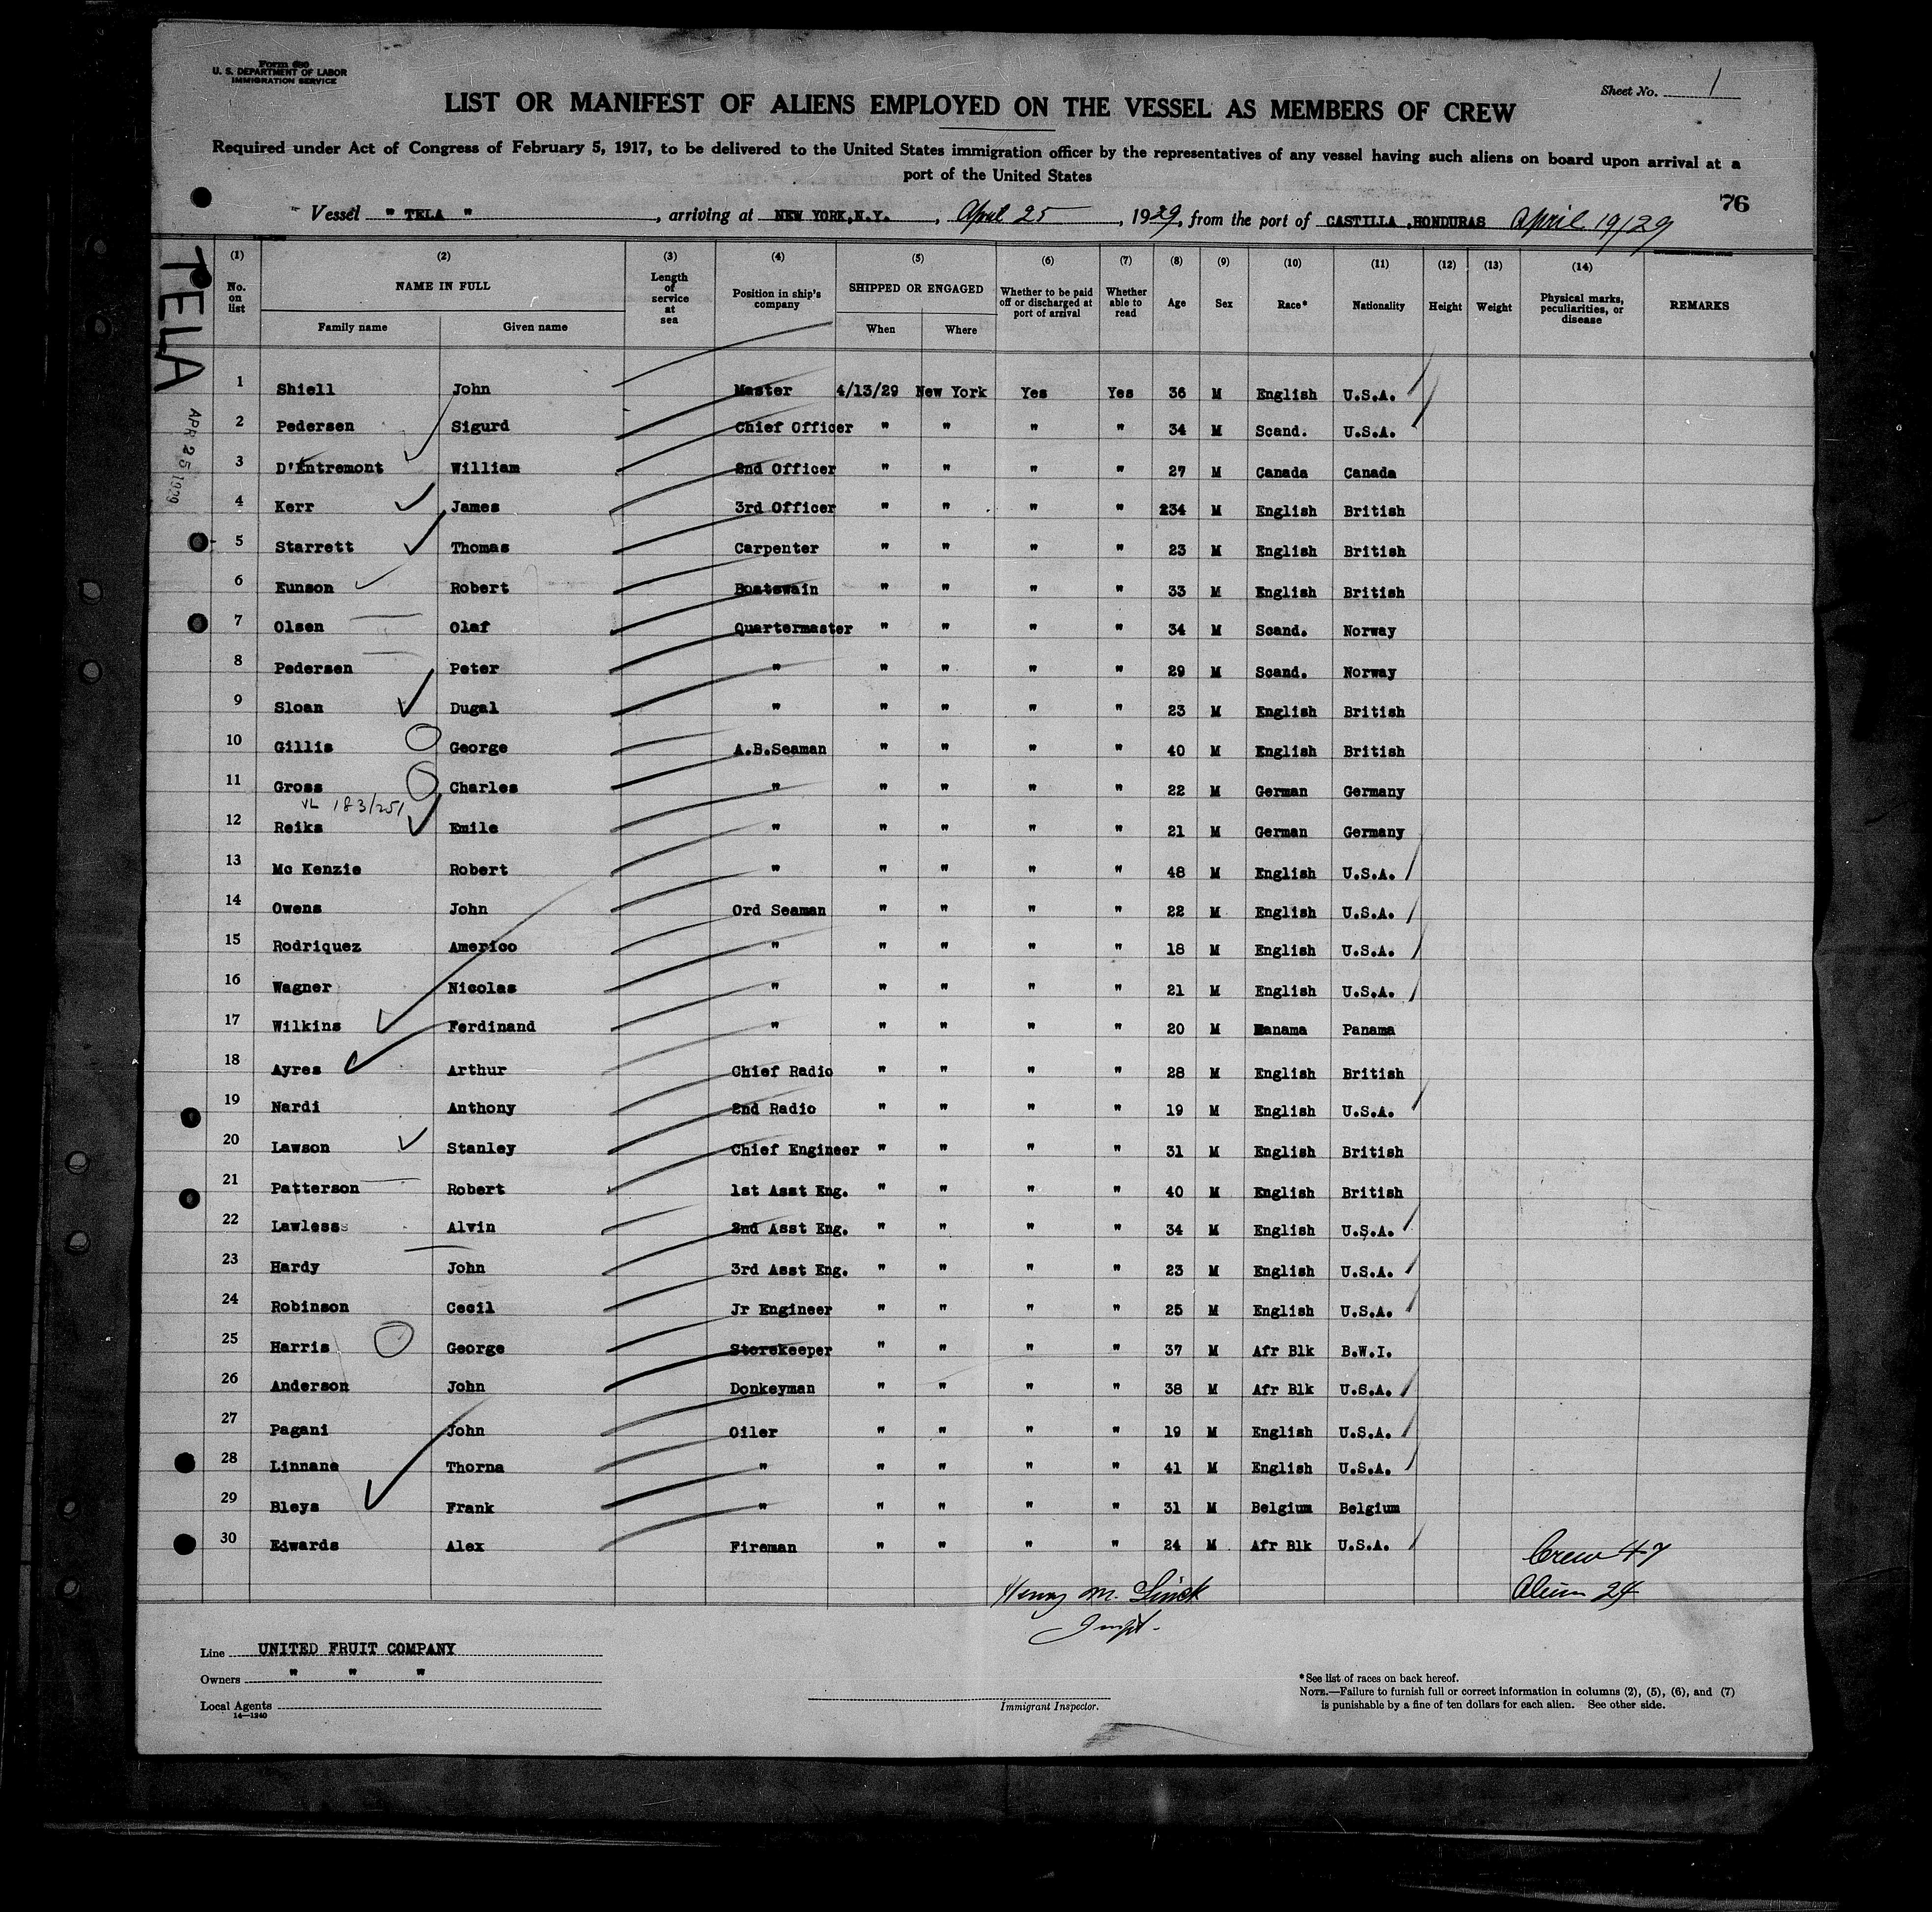 Form 680
U. S. DEPARTMENT OF LABOR
IMMIGRATION SERVICE
Sheet No. 1
LIST OR MANIFEST OF ALIENS EMPLOYED ON THE VESSEL AS MEMBERS OF CREW
Required under Act of Congress of February 5, 1917, to be delivered to the United States immigration officer by the representatives of any vessel having such aliens on board upon arrival at a
port of the United States
76
Vessel " TELA " , arriving at NEW YORK,N.Y. , April 25 , 1929, from the port of CASTILLA ,HONDURAS April 19/29
TELA
APR 25 1929
(1) (2) (3) (4) (5) (6) (7) (8) (9) (10) (11) (12) (13) (14)
No. on list NAME IN FULL Length of service at sea Position in ship's company SHIPPED OR ENGAGED Whether to be paid off or discharged at port of arrival Whether able to read Age Sex Race* Nationality Height Weight Physical marks, peculiarities, or disease REMARKS
Family name Given name When Where
1 Shiell John Master 4/13/29 New York Yes Yes 36 M English U.S.A.
2 Pedersen Sigurd Chief Officer " " " " 34 M Scand. U.S.A.
3 D'Entremont William 2nd Officer " " " " 27 M Canada Canada
4 Kerr James 3rd Officer " " " " 234 M English British
5 Starrett Thomas Carpenter " " " " 23 M English British
6 Eunson Robert Boatswain " " " " 33 M English British
7 Olsen Olaf Quartermaster " " " " 34 M Scand. Norway
8 Pedersen Peter " " " " " 29 M Scand. Norway
9 Sloan Dugal " " " " " 23 M English British
10 Gillis George A.B.Seaman " " " " 40 M English British
11 Gross Charles " " " " " 22 M German Germany
VL 183/251
12 Reiks Emile " " " " " 21 M German Germany
13 Mc Kenzie Robert " " " " " 48 M English U.S.A.
14 Owens John Ord Seaman " " " " 22 M English U.S.A.
15 Rodriquez Americo " " " " " 18 M English U.S.A.
16 Wagner Nicolas " " " " " 21 M English U.S.A.
17 Wilkins Ferdinand " " " " " 20 M Panama Panama
18 Ayres Arthur Chief Radio " " " " 28 M English British
19 Nardi Anthony 2nd Radio " " " " 19 M English U.S.A.
20 Lawson Stanley Chief Engineer " " " " 31 M English British
21 Patterson Robert 1st Asst Eng. " " " " 40 M English British
22 Lawless Alvin 2nd Asst Eng. " " " " 34 M English U.S.A.
23 Hardy John 3rd Asst Eng. " " " " 23 M English U.S.A.
24 Robinson Cecil Jr Engineer " " " " 25 M English U.S.A.
25 Harris George Storekeeper " " " " 37 M Afr Blk B.W.I.
26 Anderson John Donkeyman " " " " 38 M Afr Blk U.S.A.
27 Pagani John Oiler " " " " 19 M English U.S.A.
28 Linnane Thorna " " " " " 41 M English U.S.A.
29 Bleys Frank " " " " " 31 M Belgium Belgium
30 Edwards Alex Fireman " " " " 24 M Afr Blk U.S.A.
Crew 47
Alien 24
Henry M. Linck
Inspt.
Line UNITED FRUIT COMPANY
Owners " " "
Local Agents
14—1240
Immigrant Inspector.
*See list of races on back hereof.
NOTE.—Failure to furnish full or correct information in columns (2), (5), (6), and (7)
is punishable by a fine of ten dollars for each alien. See other side.